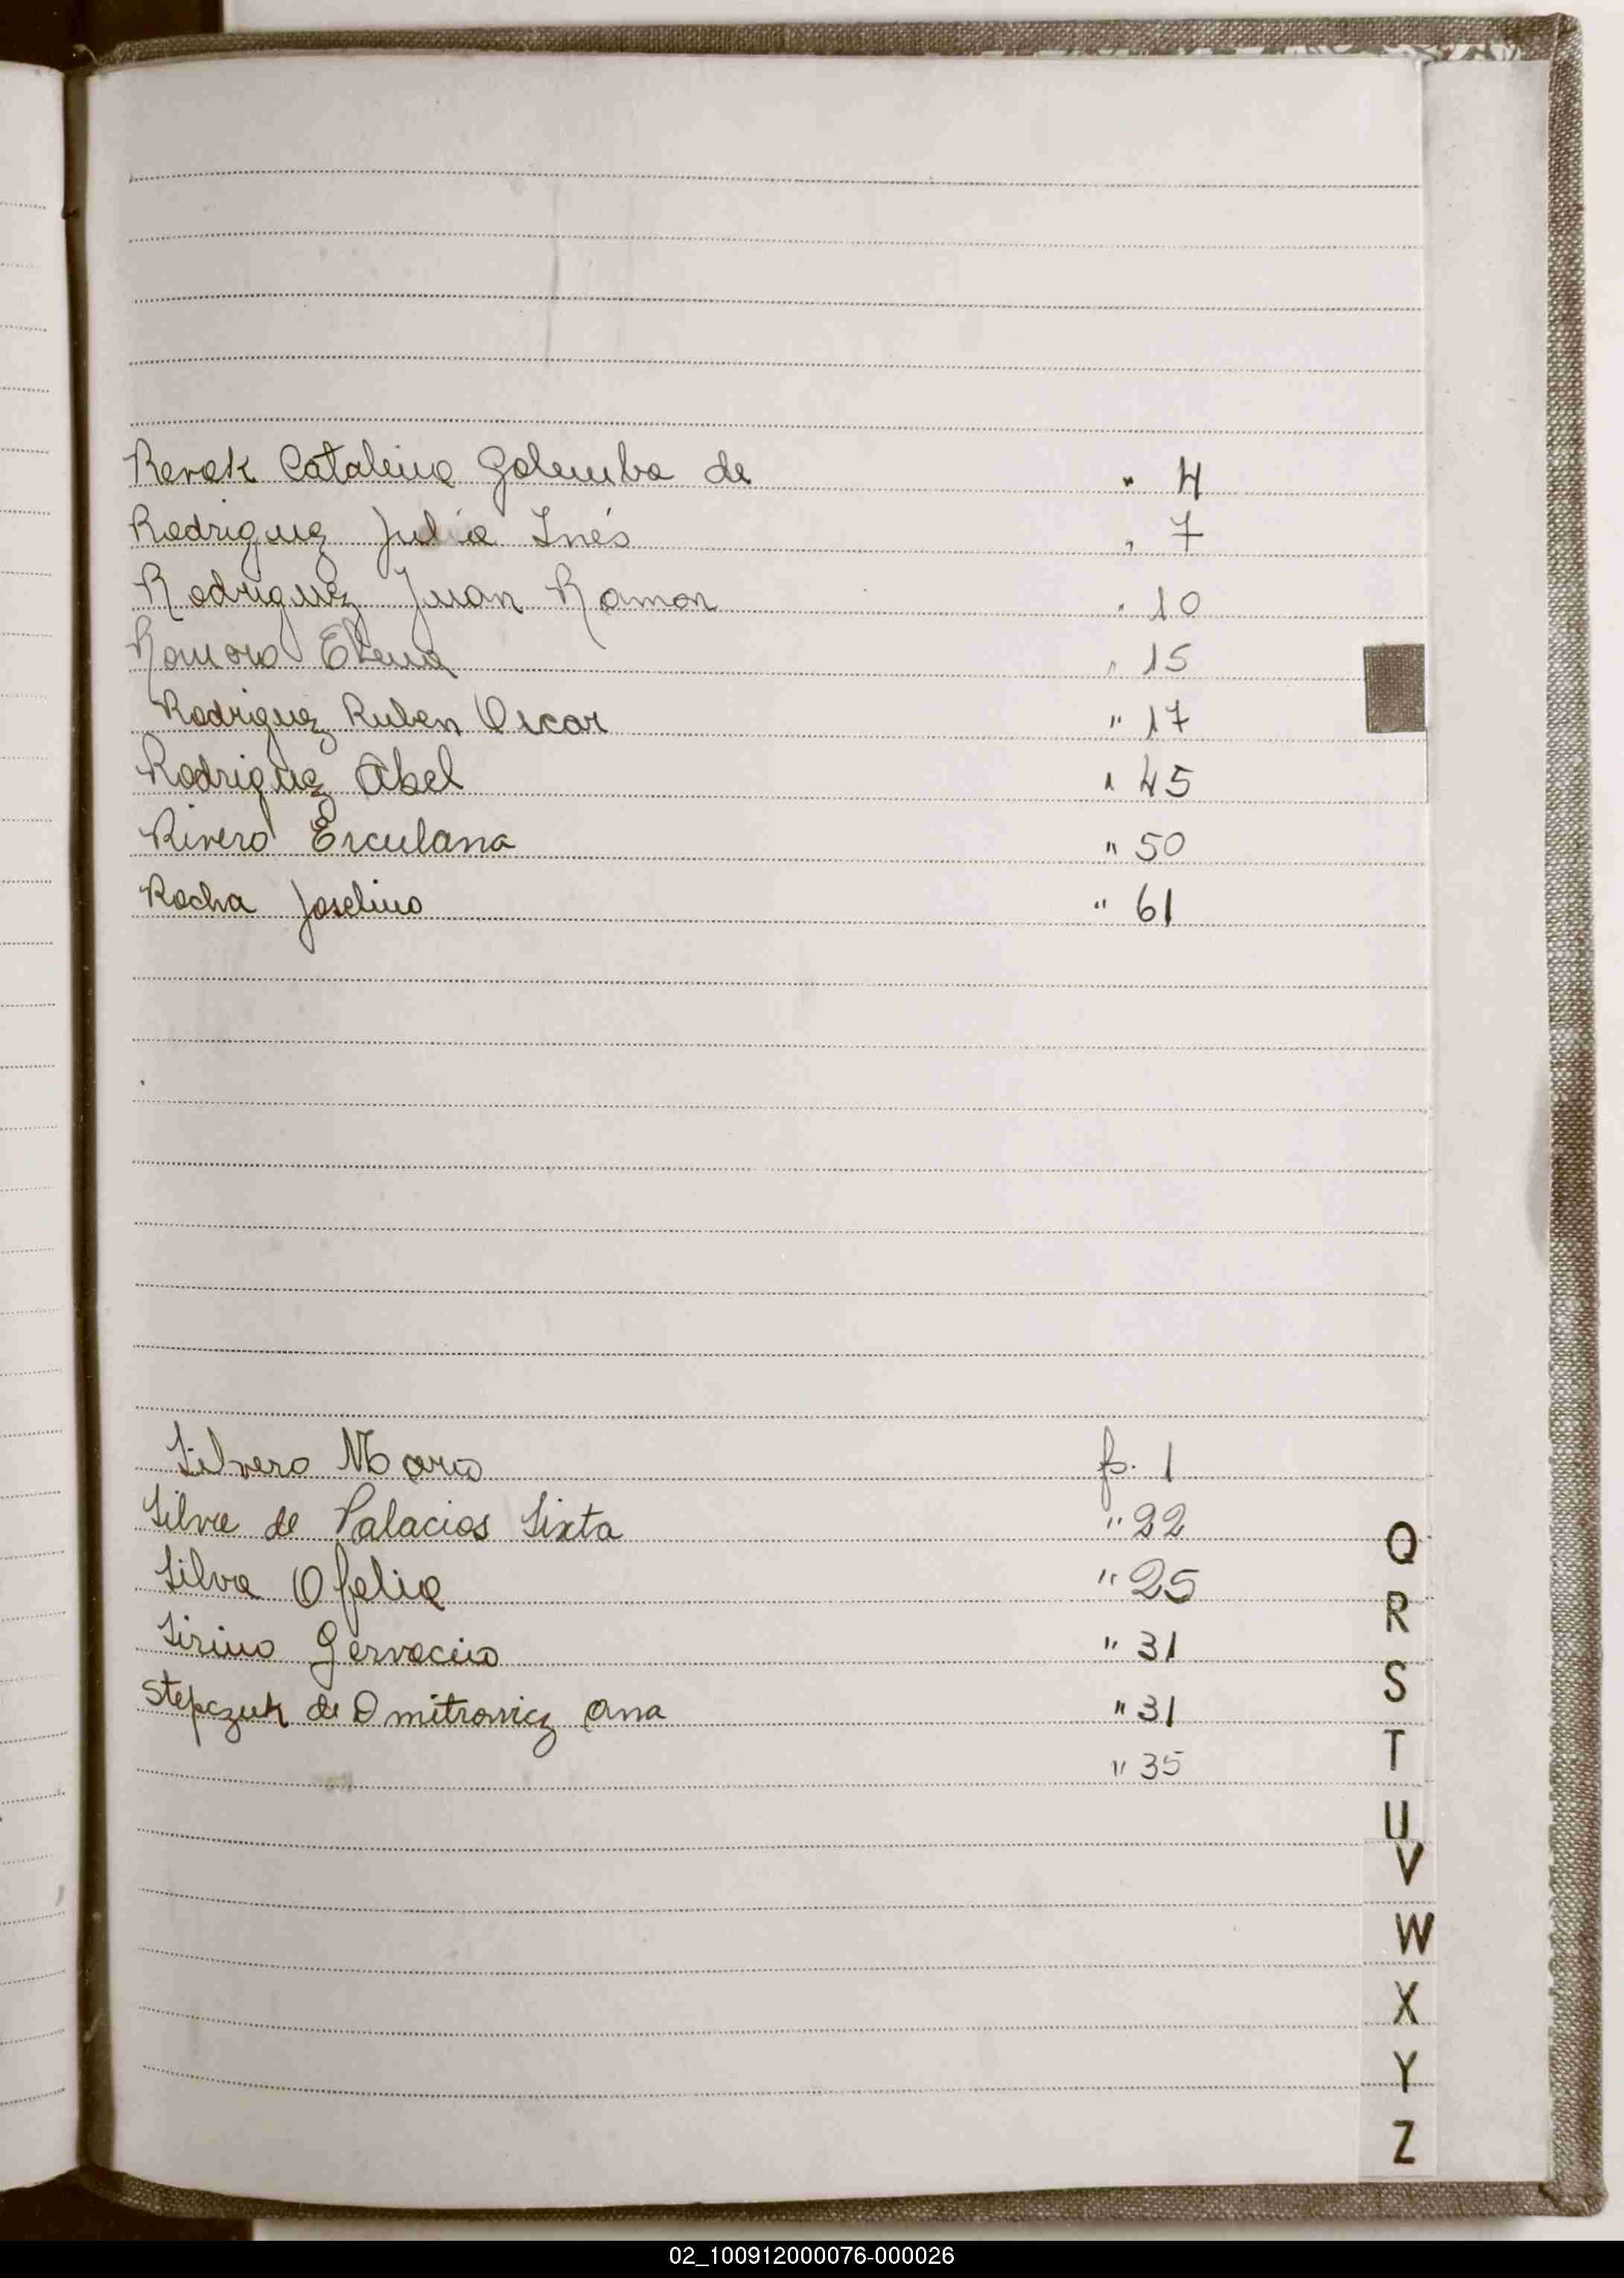 Rerek Catalina Golemba de " 4
Rodriguez Julia Inés " 7
Rodriguez Juan Ramon " 10
Romero Elena " 15
Rodriguez Ruben Oscar " 17
Rodriguez Abel " 45
Rivero Erculana " 50
Rocha Joselino " 61
Silvero Mario fs. 1
Silva de Palacios Sixta " 22
Silva Ofelia " 25
Sirino Gervacio " 31
Stepczuk de Dmitrowicz Ana " 31
" 35
Q
R
S
T
U
V
W
X
Y
Z
02_100912000076-000026